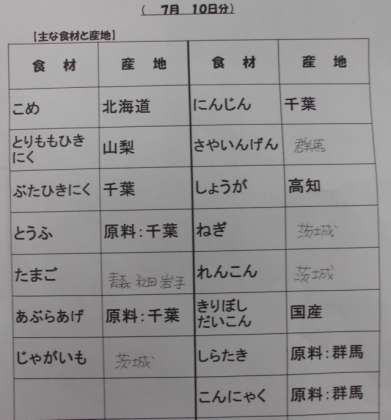 ( 7月 10日分)
【主な食材と産地】
食 材 産 地 食 材 産 地
こめ 北海道 にんじん 千葉
とりももひき
にく 山梨 さやいんげん 群馬
ぶたひきにく 千葉 しょうが 高知
とうふ 原料:千葉 ねぎ 茨城
たまご 岩手 れんこん 茨城
あぶらあげ 原料:千葉 きりぼし
だいこん 国産
じゃがいも 茨城 しらたき 原料:群馬
こんにゃく 原料:群馬